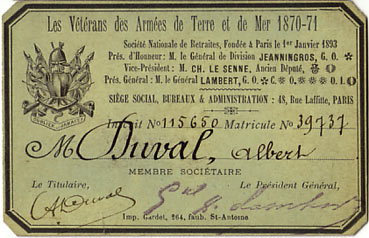 Les Vétérans des Armées de Terre et de Mer 1870-71
Société Nationale de Retraites, Fondée à Paris le 1er Janvier 1893
Prés. d'Honneur: M. le Général de Division JEANNINGROS, G. O.
Vice-Président: M. CH. LE SENNE, Ancien Député,
Prés. Général: M. le Général LAMBERT, G. O. C. O. O. I.
SIÈGE SOCIAL, BUREAUX & ADMINISTRATION: 48, Rue Laffitte, PARIS
OUBLIER JAMAIS
Inscrit No 115650 Matricule No 39737
M Duval, Albert
MEMBRE SOCIÉTAIRE
Le Titulaire, Le Président Général,
A. Duval
Imp. Gardet, 264, faub. St-Antoine